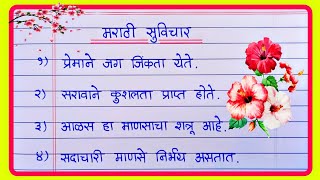 मराठी सुविचार
१) प्रेमाने जग जिंकता येते.
२) सरावाने कुशलता प्राप्त होते.
३) आळस हा माणसाचा शत्रू आहे.
४) सदाचारी माणसे निर्भय असतात.